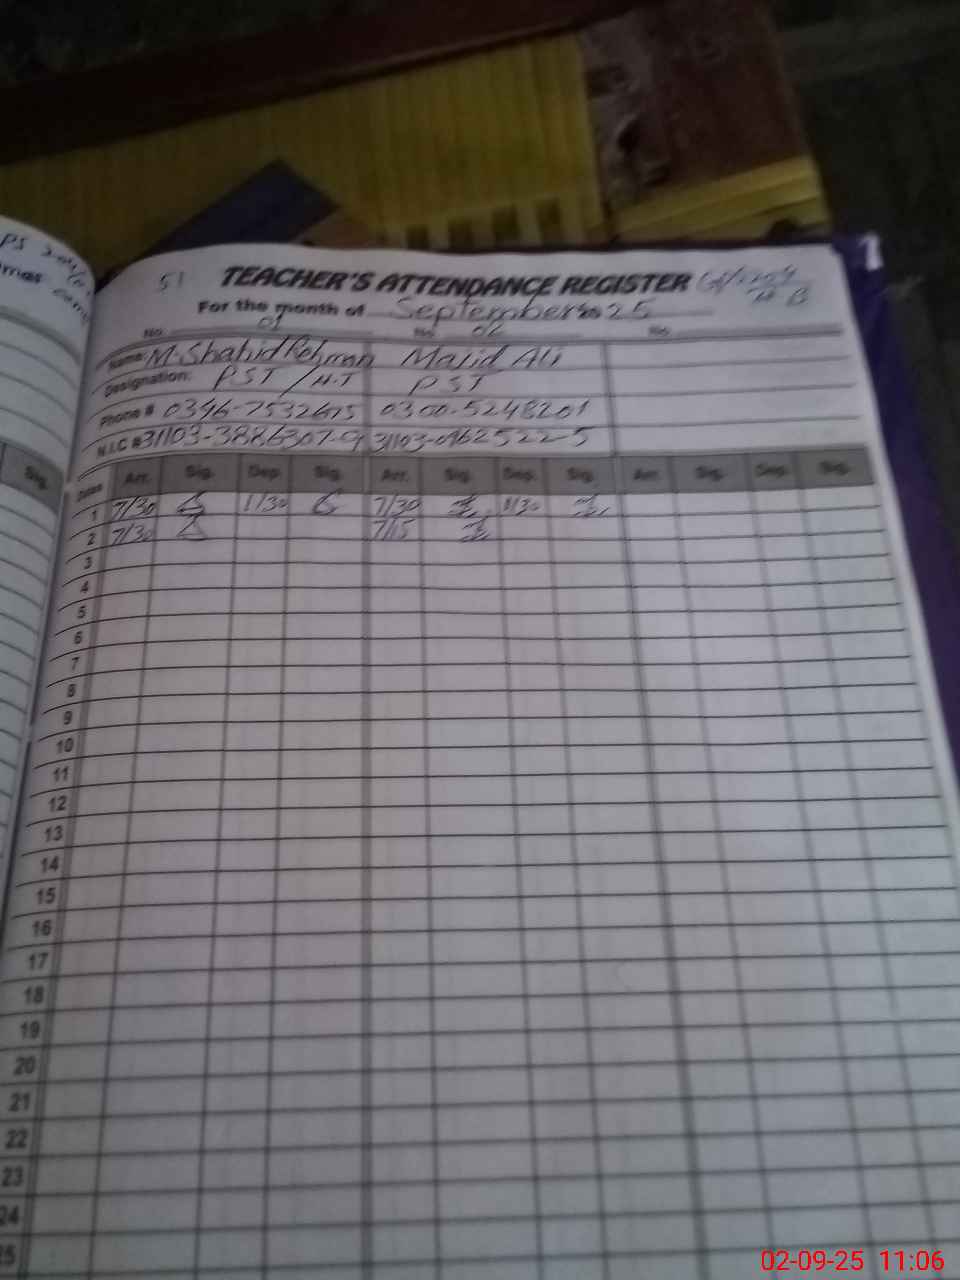 PS
51 TEACHER'S ATTENDANCE REGISTER
For the month of September 2025
No. 01 No. 02 No.
Name: M. Shahid Rehman Majid Ali
Designation: PST / H.T PST
Phone # 0346-7532675 0300-5248201
N.I.C # 31103-3886307-9 31103-0462522-5
Sig.
Dates Arr. Sig. Dep. Sig. Arr. Sig. Dep. Sig. Arr. Sig. Dep. Sig.
1 7/30 1/30 7/30 1/30
2 7/30 7/15
3
4
5
6
7
8
9
10
11
12
13
14
15
16
17
18
19
20
21
22
23
24
25
02-09-25 11:06